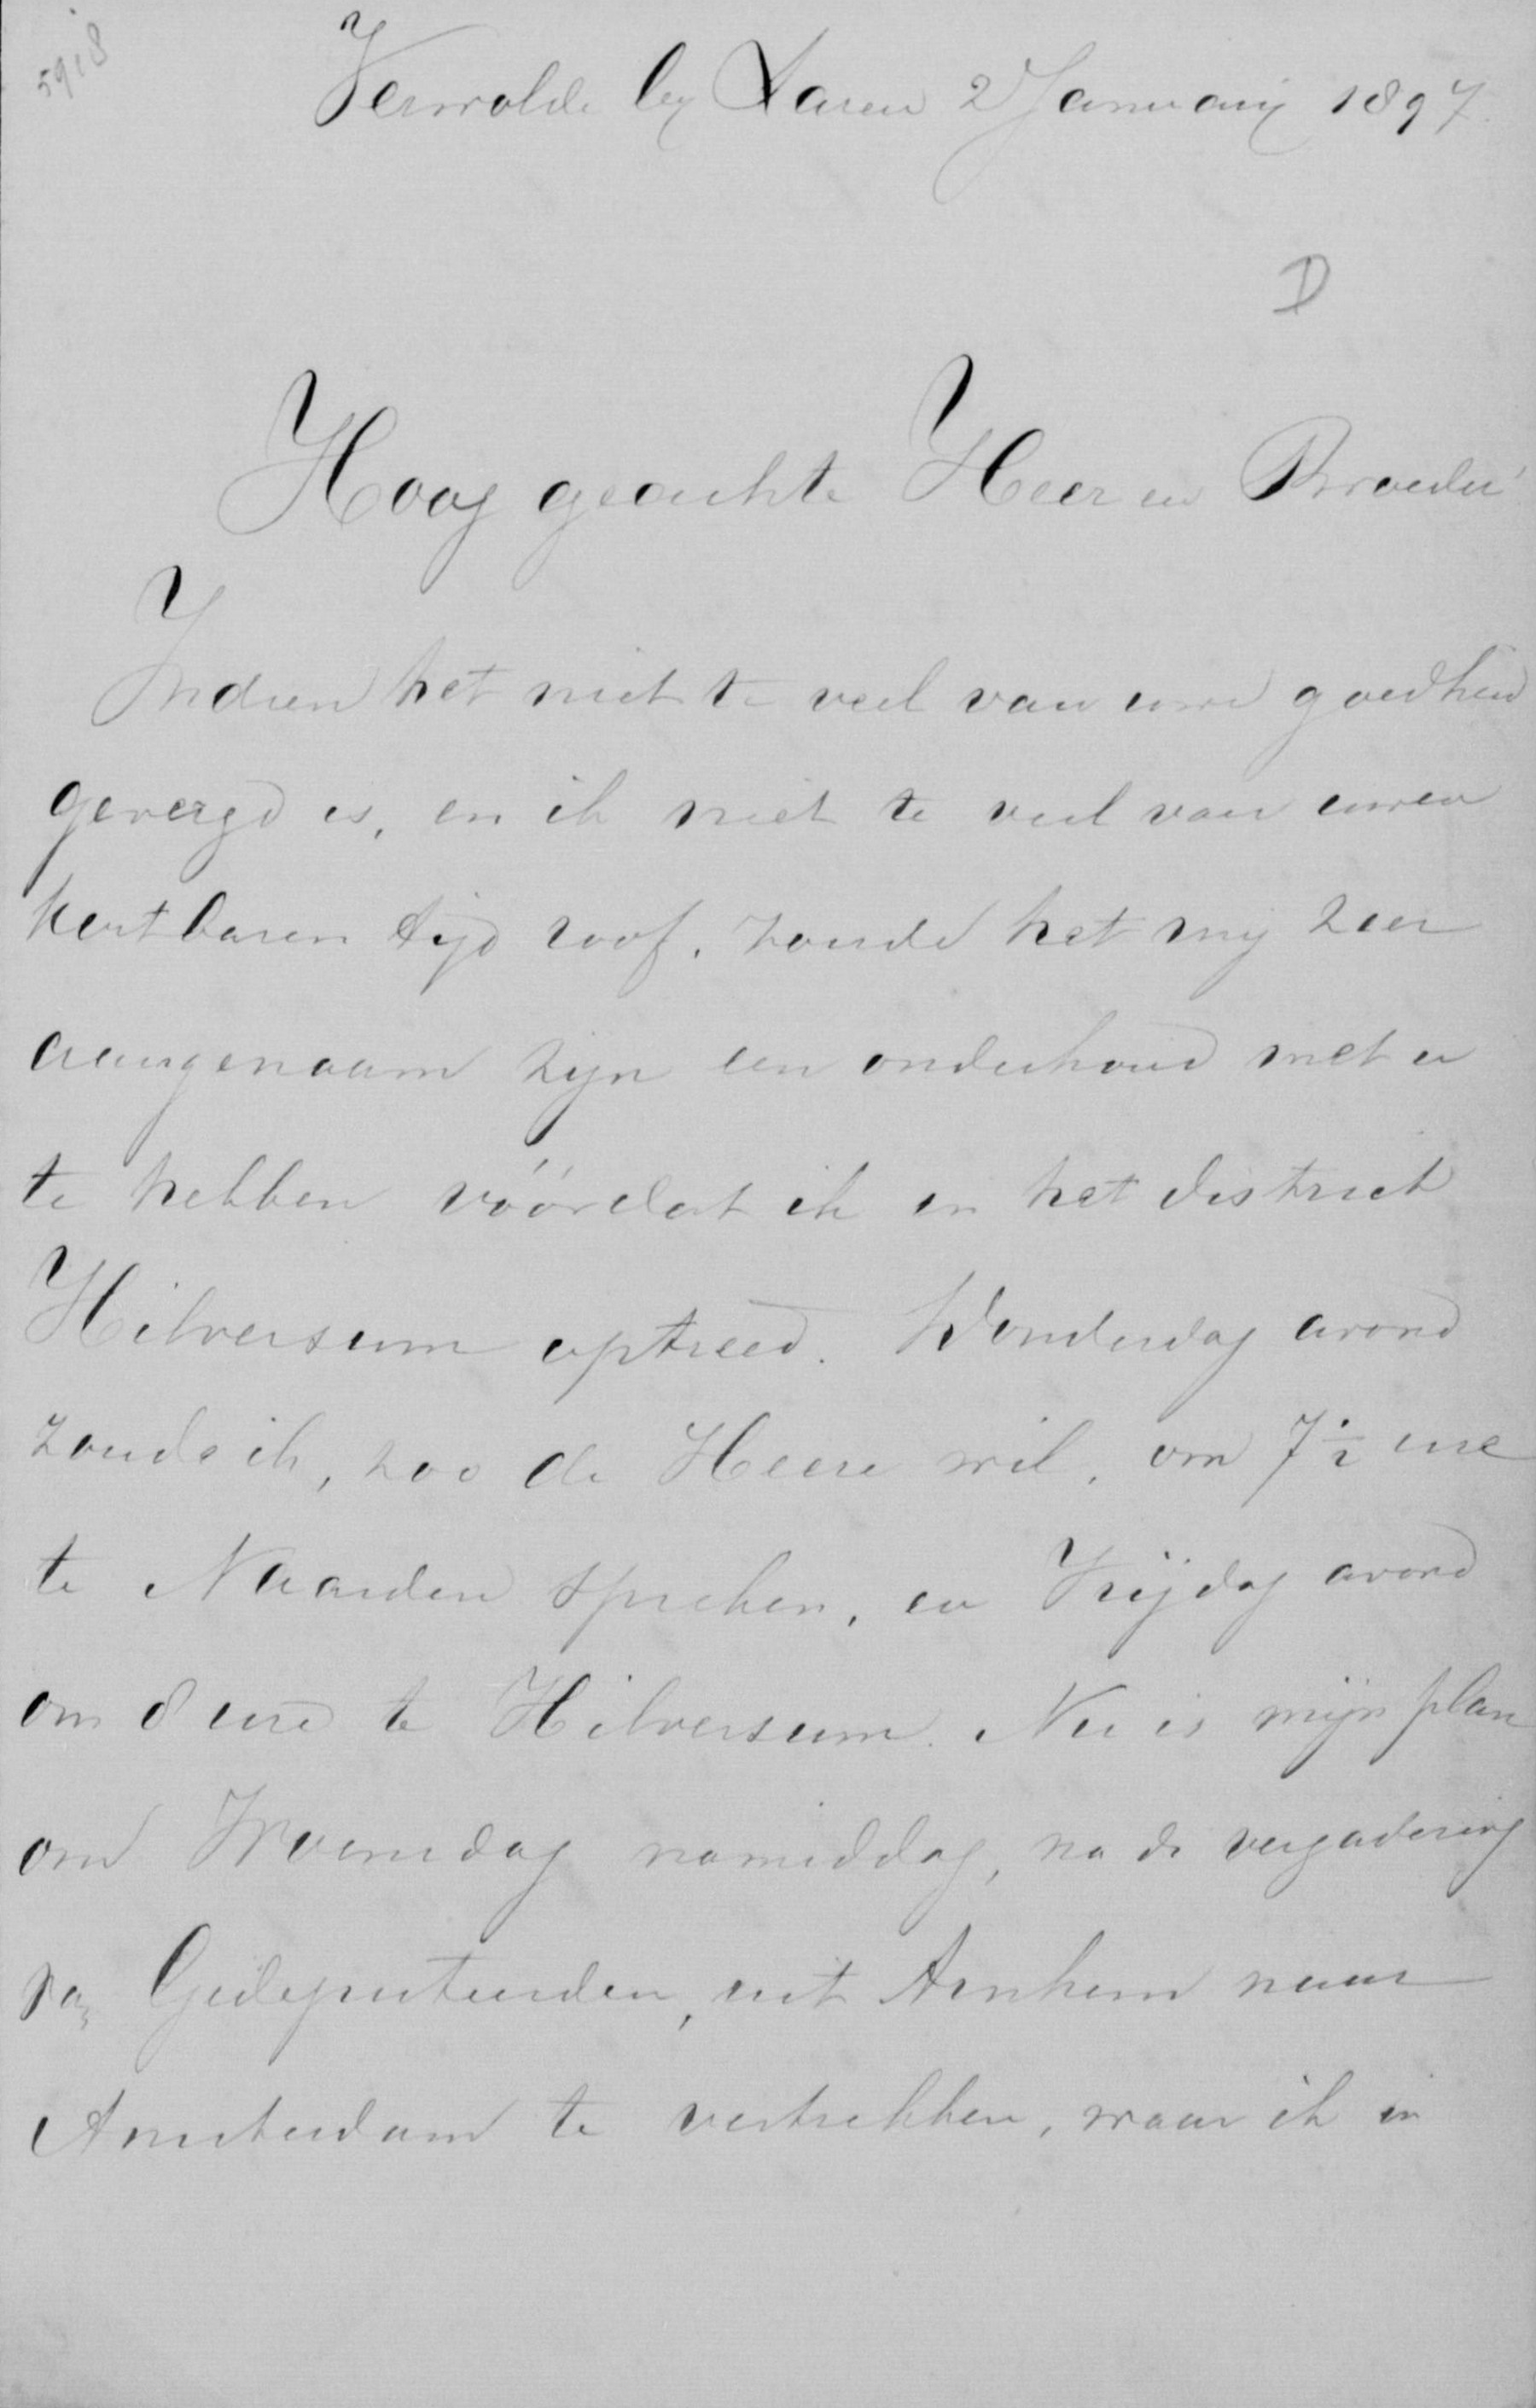 5918
Verwolde bij Laren 2 Januarij 1897.
D
Hoog geachte Heer en Broeder!
Indien het niet te veel van uwe goedheid
gevergd is, en ik niet te veel van uwen
kostbaren tijd roof, zoude het mij zeer
aangenaam zijn een onderhoud met u
te hebben vóórdat ik in het district
Hilversum optreed. Donderdag avond
zoude ik, zoo de Heere wil, om 7½ ure
te Naarden spreken, en Vrijdag avond
om 8 ure te Hilversum. Nu is mijn plan
om Woensdag namiddag, na de vergadering
van Gedeputeerden, uit Arnhem naar
Amsterdam te vertrekken, waar ik in